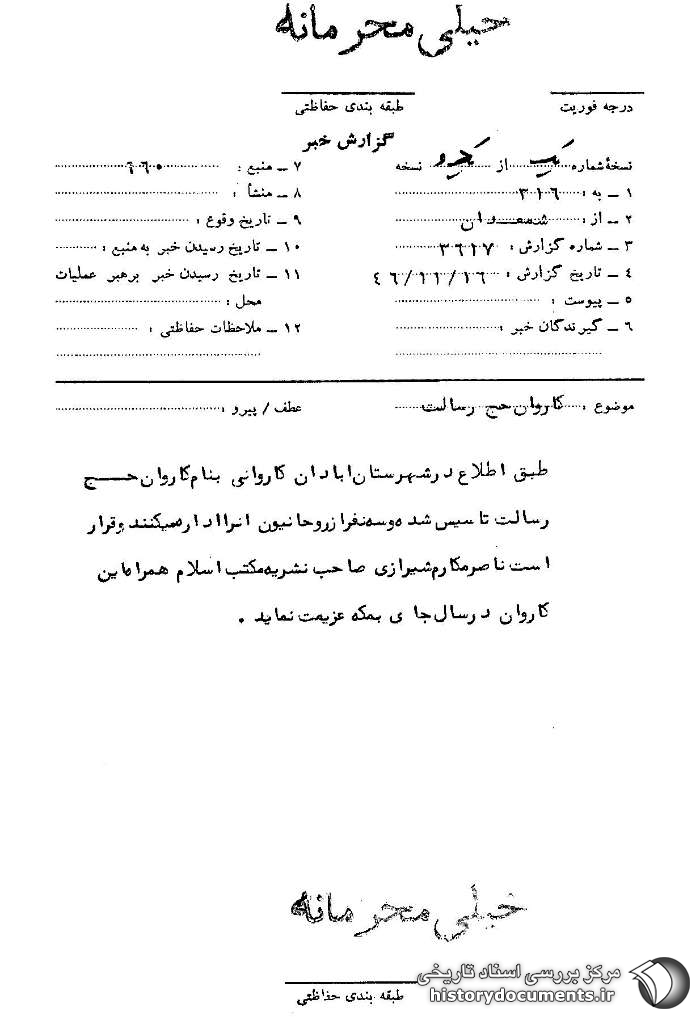 خیلی محرمانه
درجه فوریت
طبقه بندی حفاظتی
گزارش خبر
نسخهٔ شماره یک از دو نسخه
۱ ــ به : ۳۱۶
۲ ــ از : شمعدان
۳ ــ شماره گزارش : ۳۶۱۷
۴ ــ تاریخ گزارش : ۴۶/۱۱/۱۶
۵ ــ پیوست :
۶ ــ گیرندگان خبر :
۷ ــ منبع : ۶۶۰
۸ ــ منشأ :
۹ ــ تاریخ وقوع :
۱۰ ــ تاریخ رسیدن خبر به منبع :
۱۱ ــ تاریخ رسیدن خبر برهبر عملیات
محل :
۱۲ ــ ملاحظات حفاظتی :
موضوع : کاروان حج رسالت
عطف / پیرو :
طبق اطلاع در شهرستان ابادان کاروانی بنام کاروان حج
رسالت تاسیس شده و سه نفر از روحانیون انرا اداره میکنند و قرار
است ناصر مکارم شیرازی صاحب نشریه مکتب اسلام همراه این
کاروان در سال جا ی بمکه عزیمت نماید .
خیلی محرمانه
طبقه بندی حفاظتی
مرکز بررسی اسناد تاریخی
historydocuments.ir